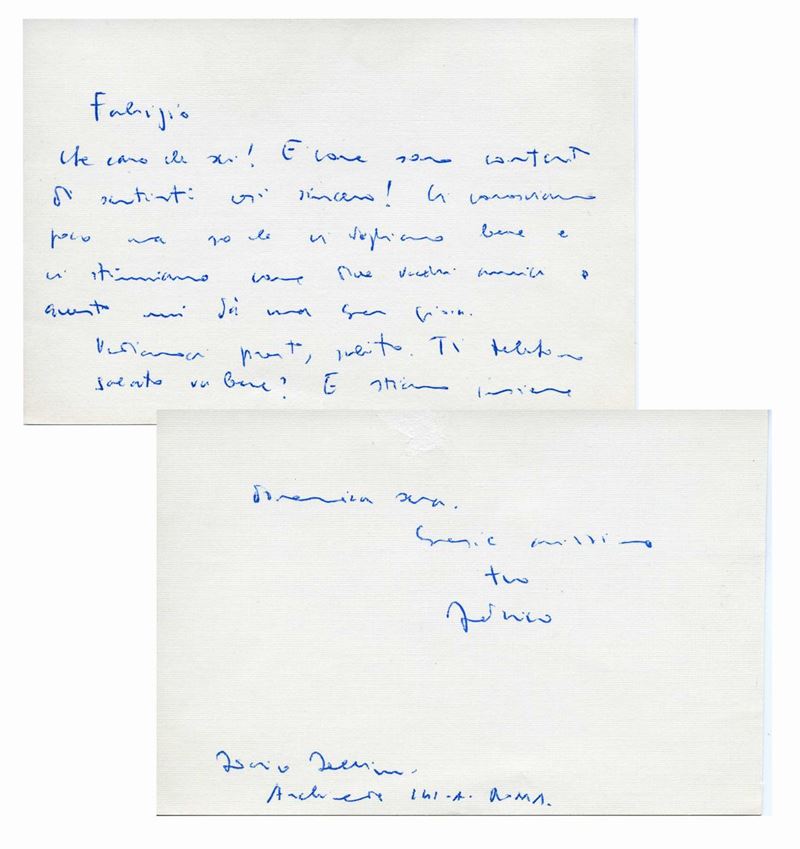 Fabrizio
che caro che sei! E come sono contento
di sentirti così sincero! Ci conosciamo
poco ma so che ci vogliamo bene e
ci stimiamo come due vecchi amici e
questo mi dà una gran gioia.
Vediamoci presto, subito. Ti telefono
sabato va bene? E stiamo insieme
domenica sera.
Grazie
tuo
Federico
Federico Fellini.
141.A. ROMA.